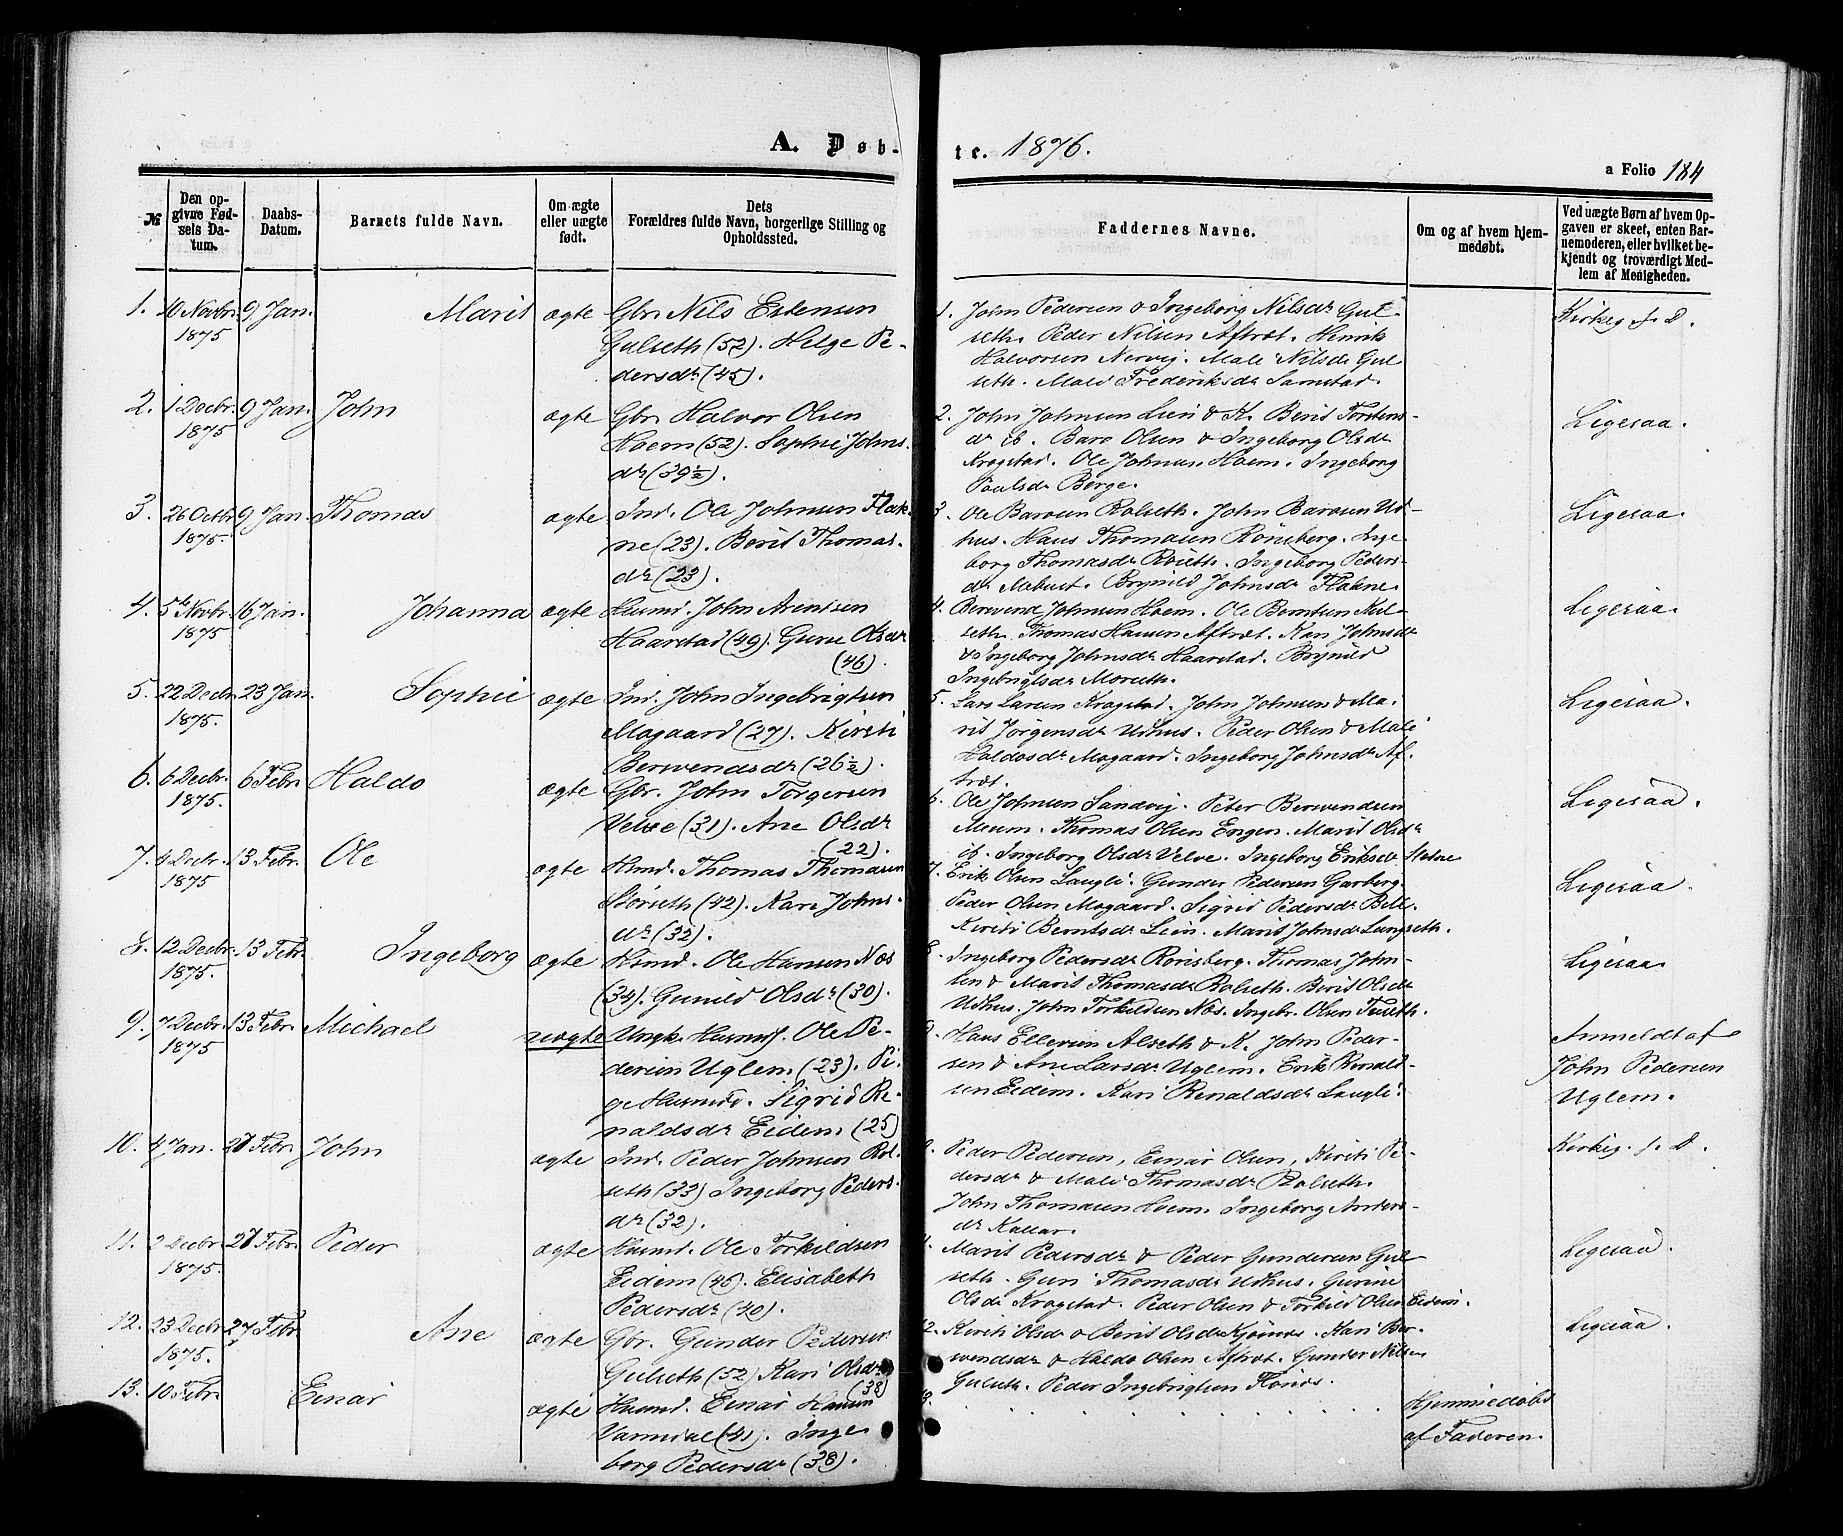 A. Døb-
te. 1876.
a Folio 184
№
Den op-
givne Fød-
sels Da-
tum.
Daabs-
Datum.
Barnets fulde Navn.
Om ægte
eller uægte
født.
Dets
Forældres fulde Navn, borgerlige Stilling og
Opholdssted.
Faddernes Navne.
Om og af hvem hjem-
medøbt.
Ved uægte Børn af hvem Op-
gaven er skeet, enten Bar-
nemoderen, eller hvilket be-
kjendt og troværdigt Med-
lem af Menigheden.
1. 10 Novbr. 9 Jan. Marit ægte Gbr. Nils Estensen
1875 Gulseth (52). Helge Pe-
dersdr (45).
1. John Pedersen & Ingeborg Nilsdr Gul-
seth. Peder Nilsen Aftræt. Henrik
Halvorsen Nervig. Mali Nilsdr Gul-
seth. Mali Frederiksdr Samstad.
Kirkeg. f. D.
2. 1 Decbr. 9 Jan. John ægte Gbr. Halvor Olsen
1875 Hoem (52). Sophie Johns-
dr (39½).
2. John Johnsen Lien & K. Berit Torstens-
dr ib. Baro Olsen & Ingeborg Olsdr
Kragstad. Ole Johnsen Hoem. Ingeborg
Paulsdr Borge.
Ligesaa.
3. 26 Octbr. 9 Jan. Thomas ægte Ind. Ole Johnsen Flak-
1875. ne (23). Berit Thomas-
dr (23).
3. Ole Barosen Rolseth. John Barosen Ud-
hus. Hans Thomasen Rönsberg. Inge-
borg Thomasdr Roseth. Ingeborg Peders-
dr Mebust. Brynild Johnsdr Flakne.
Ligesaa.
4. 5te Novbr. 16 Jan. Johanna ægte Husmd. John Arentsen
1875 Haarstad (49). Gurie Olsdr
(46).
4. Berwend Johnsen Hoem. Ole Berntsen Kul-
seth. Thomas Hansen Aftræt. Kari Johnsdr
& Ingeborg Johnsdr Haarstad. Brynild
Ingebrigtsdr Moseth.
Ligesaa.
5. 22 Decbr. 23 Jan. Sophie ægte Ind. John Ingebrigtsen
1875. Mogaard (27). Kirsti
Berwendsdr (26½).
5. Lars Larsen Kragstad. John Johnsen & Ma-
rit Jörgensdr Udhus. Peder Olsen & Mali
Haldosdr Mogaard. Ingeborg Johnsdr Af-
træt.
Ligesaa.
6. 6 Decbr. 6 Febr. Haldo ægte Gbr. John Torgersen
1875. Velve (31). Ane Olsdr
(22).
6. Ole Johnsen Sandvig. Peter Berwendsen
Meum. Thomas Olsen Engen. Marit Olsdr
ib. Ingeborg Olsdr Velve. Ingeborg Eriksdr Stolne
Ligesaa.
7. 4 Decbr. 13 Febr. Ole ægte Husmd. Thomas Thomasen
1875 Störseth (42). Kari Johns-
dr (32).
7. Erik Olsen Langli. Gunder Pedersen Garberg.
Peder Olsen Mogaard. Sigrid Pedersdr Bell.
Kirsti Berntsdr Lien. Marit Johnsdr Langseth.
Ligesaa.
8. 12 Decbr. 13 Febr. Ingeborg ægte Husmd. Ole Hansen Næs
1875. (34). Gunild Olsdr (30).
8. Ingeborg Pedersdr Rönsberg. Thomas John-
sen & Marit Thomasdr Rolseth. Berit Olsdr
Udhus. John Torkildsen Næs. Ingebr. Olsen Fuseth.
Ligesaa.
9. 7 Decbr. 13 Febr. Michael uægte Ungk. Husmd. Ole Pe-
1875 dersen Uglem (23). Pi-
ge Husmd. Sigrid Re-
naldsdr Eidem (25)
9. Hans Ellevsen Alseth & K. John Peder-
sen & Ane Larsdr Uglem. Erik Renald-
sen Eidem. Kari Renaldsdr Langli.
Anmeldt af
John Pedersen
Uglem.
10. 4 Jan. 27 Febr. John ægte Ind. Peder Johnsen Rol-
seth (33) Ingeborg Peders-
dr (32).
Peder Pedersen, Einar Olsen, Kirsti Pe-
dersdr & Mali Thomasdr Rolseth.
John Thomasen Hoem. Ingeborg Anders-
dr Kallar.
Kirkeg. f. D.
11. 2 Decbr. 27 Febr. Peder ægte Husmd. Ole Torkildsen
1875. Eidem (45). Elisabeth
Pedersdr (40).
Marit Pedersdr & Peder Gundersen Gul-
seth. Guri Thomasdr Udhus. Gurine
Olsdr Kragstad. Peder Olsen & Torkild Olsen Eidem.
Ligesaa.
12. 23 Decbr. 27 Febr. Ane ægte Gbr. Gunder Pedersen
1875. Gulseth (52) Kari Olsdr
(38)
2. Kirsti Olsdr & Berit Olsdr Kjösnæs. Kari Ber-
wendsdr & Haldo Olsen Aftræt. Gunder Nilsen
Gulseth. Peder Ingebrigtsen Flönæs.
Ligesaa.
13. 10 Febr. Einar ægte Husmd. Einar Hansen
Varmdal (41). Inge-
borg Pedersdr (38).
3.
Hjemmedöbt
af Faderen.